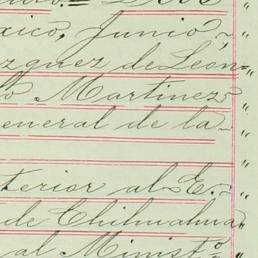 xico, Junio
zquez de León
o Martinez
eneral de la
terior al E.
de Chihuahua
al Minist.º